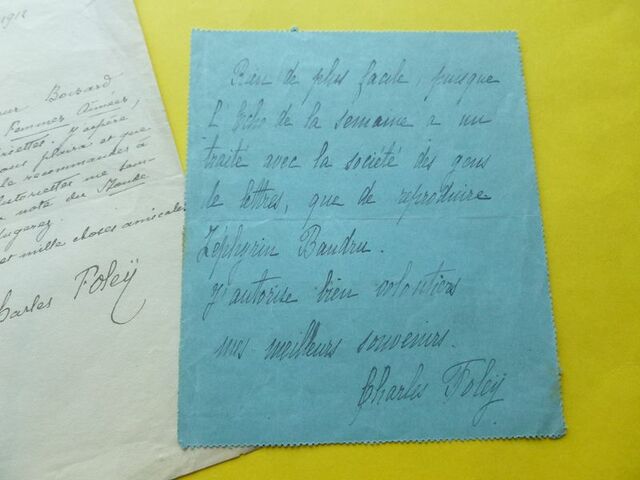 1912
Boisard
Femmes Aimées,
riettes. J'espère,
ous plaira et que
le recommander à
istoriettes me
note du Monde
et mille choses amicales
Charles Foleÿ
Rien de plus facile, puisque
l'Echo de la semaine a un
traité avec la société des gens
de lettres, que de reproduire
Zéphyrin Baudru.
J'autorise bien volontiers
mes meilleurs souvenirs.
Charles Foleÿ